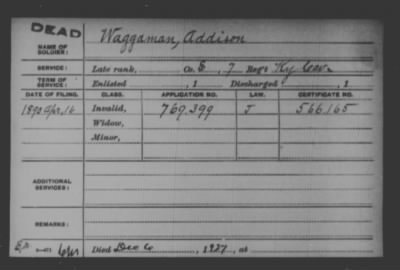 DEAD
NAME OF SOLDIER: Waggaman, Addison
SERVICE: Late rank, Co. 7 Reg't Ky Cav.
TERM OF SERVICE: Enlisted , 1 Discharged , 1
DATE OF FILING. CLASS. APPLICATION NO. LAW. CERTIFICATE NO.
1890 Apr, 16 Invalid, 769,399 J 566165
Widow,
Minor,
ADDITIONAL SERVICES:
REMARKS:
Died Dec 6, 1927, at